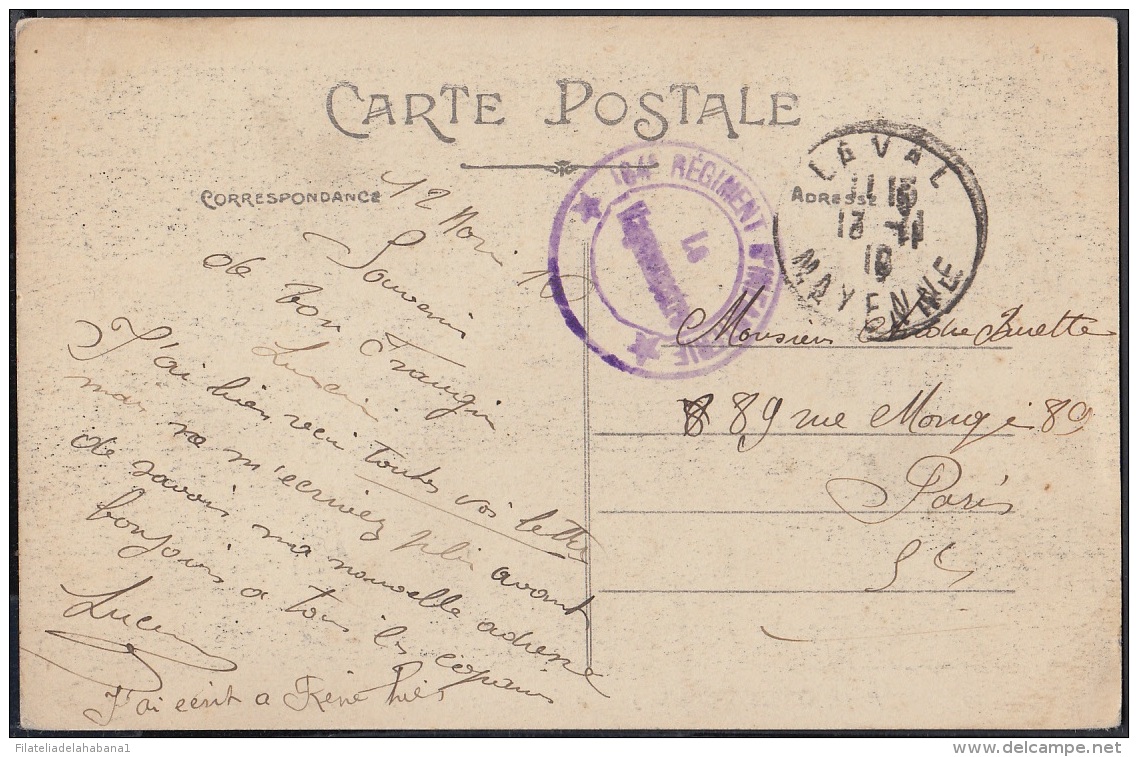 CARTE POSTALE
CORRESPONDANCE
ADRESSE
RÉGIMENT D'INFANTERIE
LAVAL
13 -11
MAYENNE
12 Nov
Souvenir
de ton Frangin
Lucien
J'ai bien reçu toutes vos lettre
mais ne m'ecrivez plus avant
de savoir ma nouvelle adresse
bonjours a tous les copains
Lucien
J'ai ecrit a René hier
Monsieur
89 rue Monge 89
Paris
5
Filateliadelahabana1
www.delcampe.net